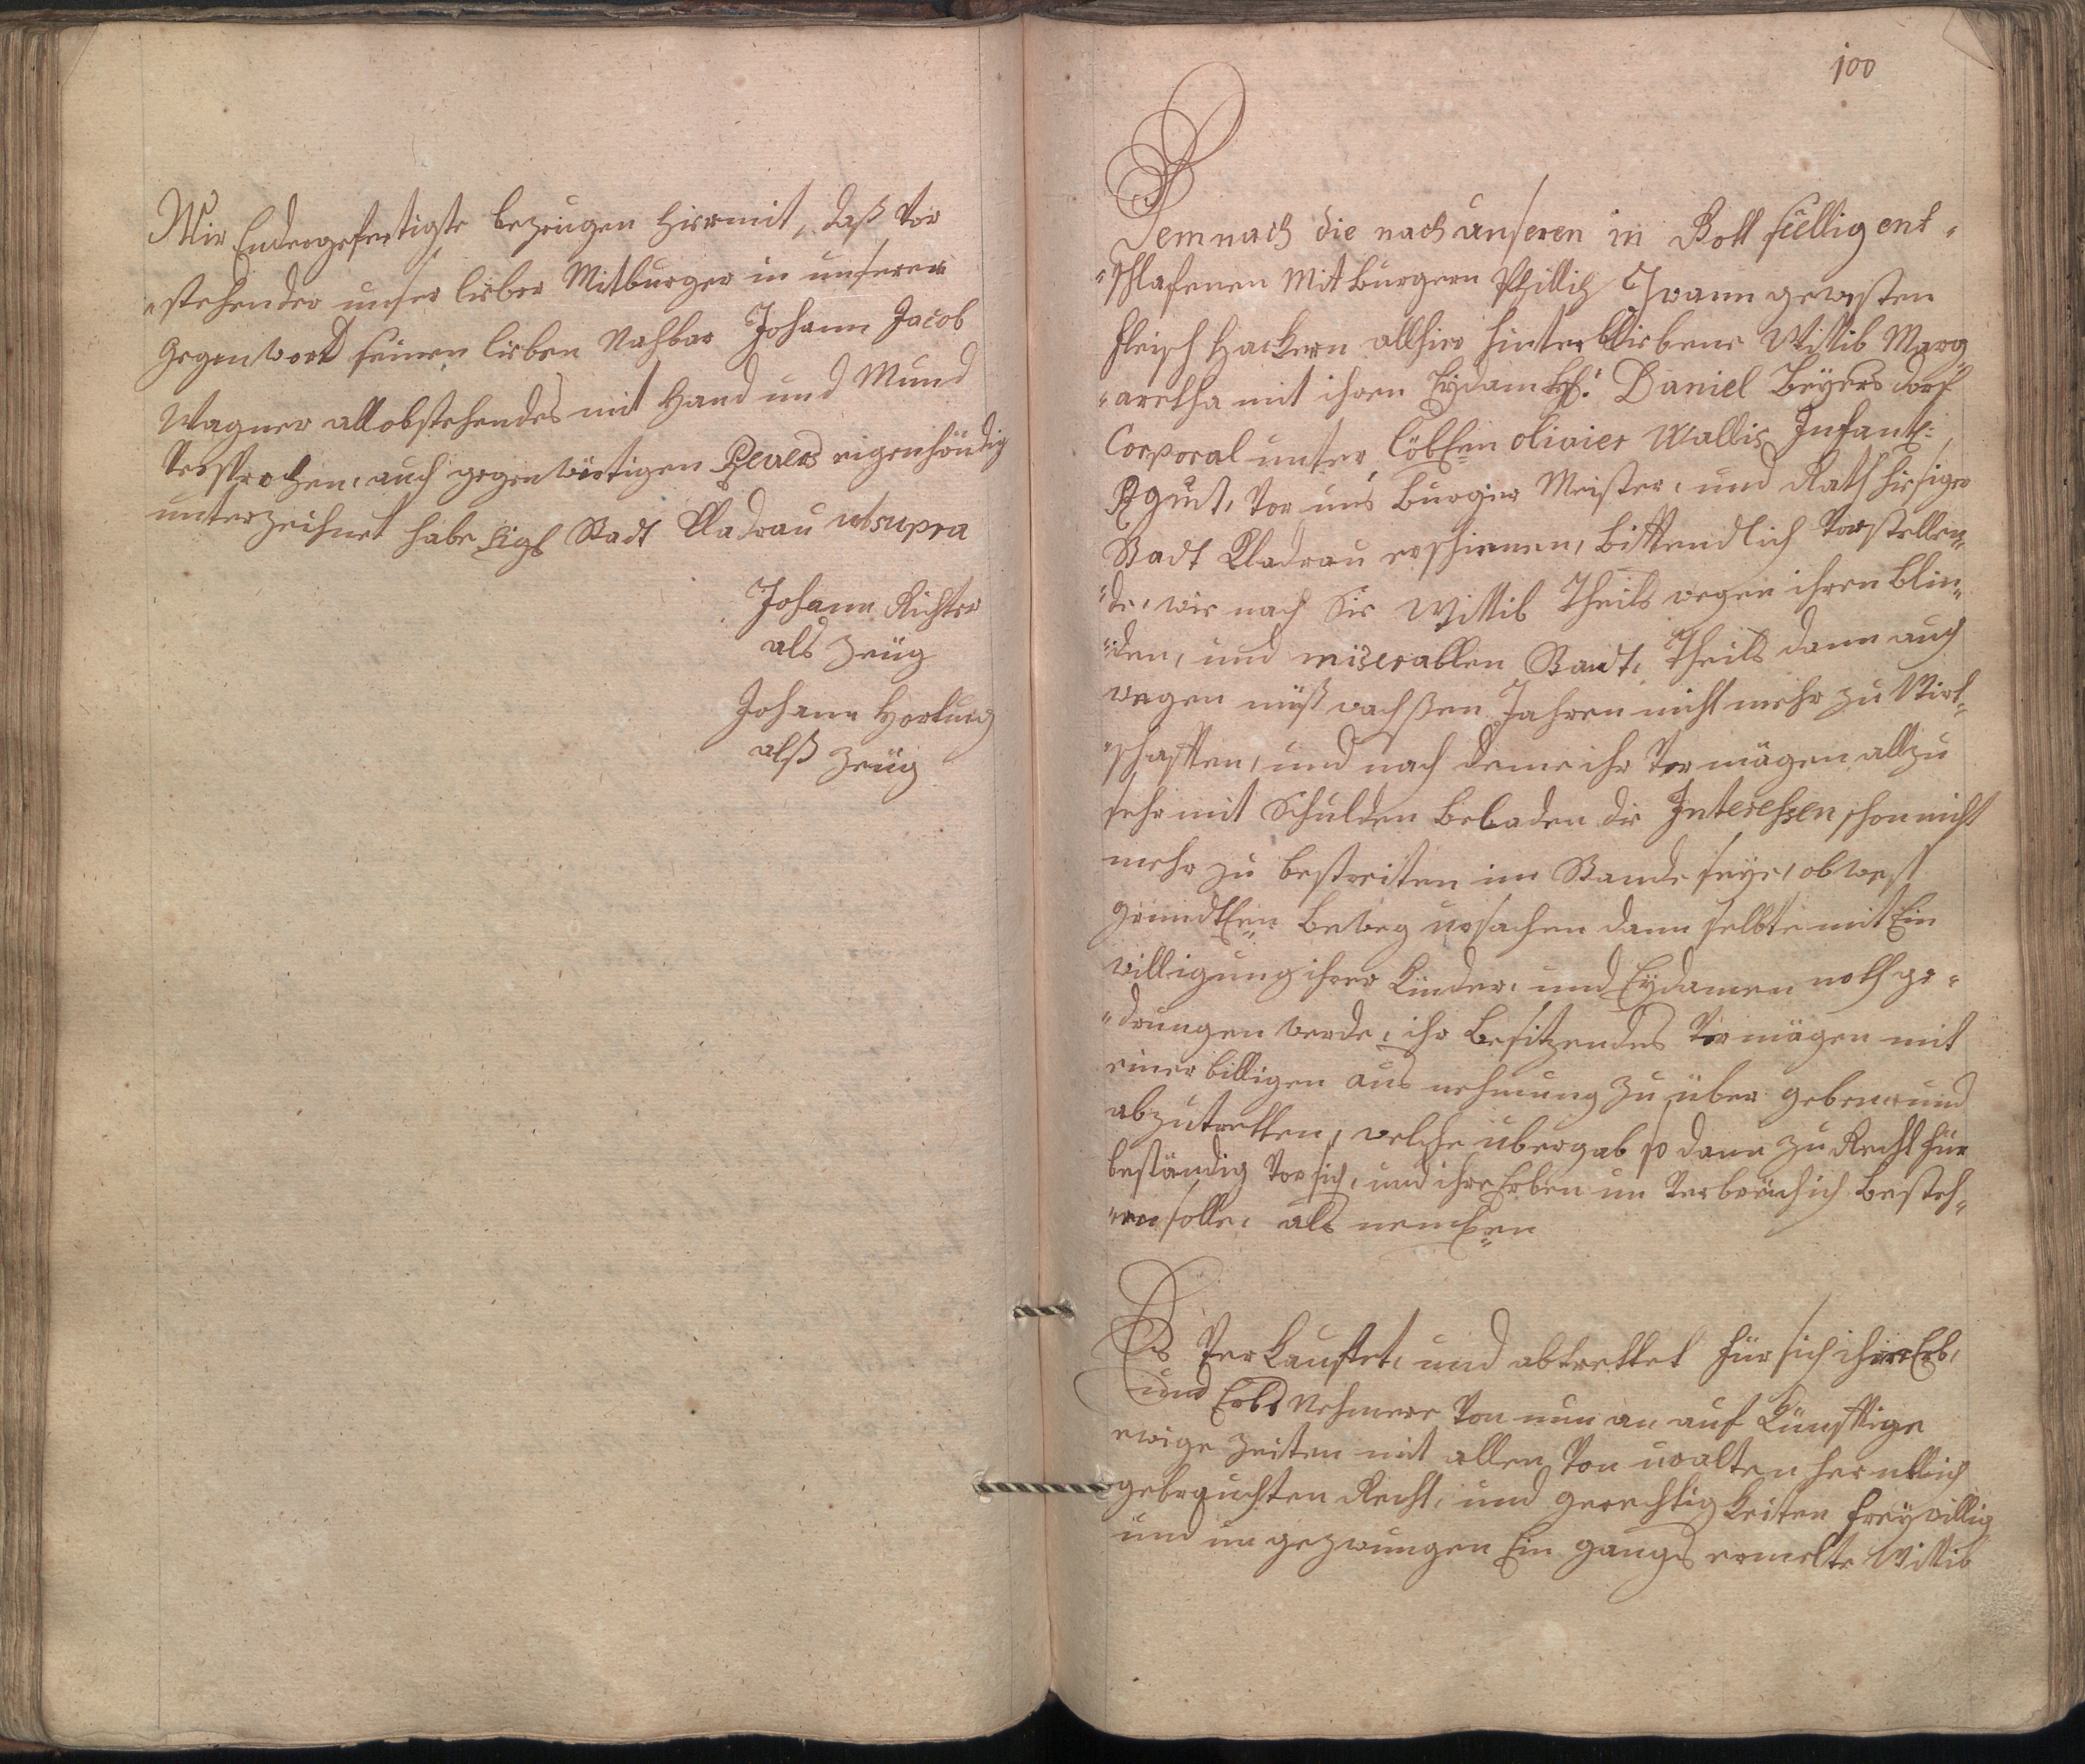 Wir Endesgefertigte bezeugen hiermit, daß vor
„stehender unser lieber Mitburger in unserer
Gegenwart seinen lieben Nachbar Johann Jacob
Wagner all obstehendes mit Hand und Mund
versprochen, auch gegenwärtigen Revers eigenhändig
unterzeichnet habe Sigl Stadt Kladrau ut supra
Johann Richter
als Zeüg
Johann Hartung
alß Zeüg
100
Demnach die nach unseren in Gott seelig ent„
„schlafenen Mit burgern Phillip gewesten
fleisch Hackern allhier hinterbliebene Wittib Marg
„aretha mit ihren Eydam Daniel Beyersdorf
Corporal unter Löbl: olivier Wallis Infant:
Rgmt, vor uns Burger Meister, und Rath hiesiger
Stadt Kladrau erschienen, bittendlich vorstellen„
„de, wie nach Sie Wittib Theils wegen ihren blin„
„den, und miserablen Standt, Theils dann auch
wegen mißwachßen Jahren nicht mehr zu Wirt„
„schafften, und nach deme ihr Vermägen allzu
sehr mit Schulden beladen die Interessen schon nicht
mehr zu bestreiten im Stande seye, ob
gründlen beweg ursachen dann selbte mit Ein
willigung ihrer Kinder, und Eydamen noth ge„
„drungen werde, ihr besitzendes Vermägen mit
einer billigen aus nehmung zu über geben und
abzutretten, welche übergab so dann zu Recht für
beständig vor sich, und ihre Erben un verbrüchlich besteh„
„en solle, als nemlen
Es verkauffet, und abtrettet für sich ihre Erb,
und Erbs Nehmere von nun an auf künfftige
ewige Zeiten mit allen von uralten
gebrauchten Recht, und gerechtigkeiten freywillig
und un gezwungen Ein gangs ermelte Wittib